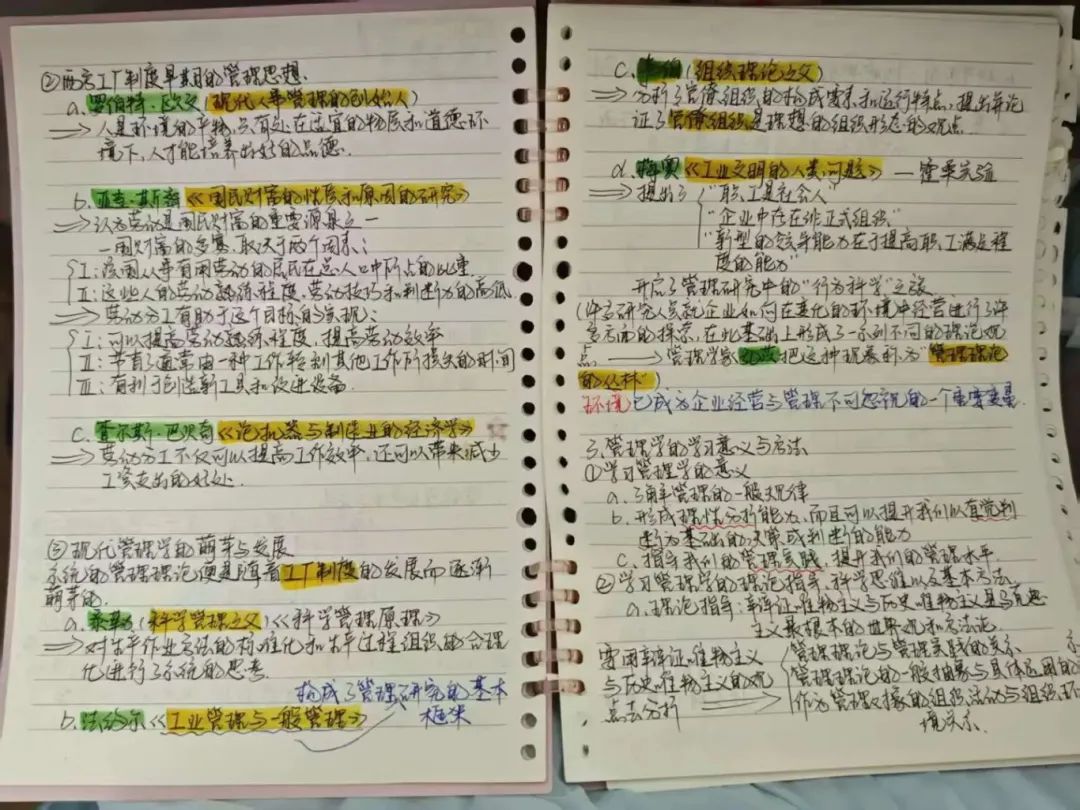 ②西方工厂制度早期的管理思想.
a.罗伯特·欧文(现代人事管理的创始人)
⇒人是环境的产物,只有处在适宜的物质和道德环
境下,人才能培养出好的品德.
b.亚当·斯密《国民财富的性质和原因的研究》
⇒认为劳动是国民财富的重要源泉之一
一国财富的多寡,取决于两个因素:
Ⅰ:该国从事有用劳动的居民在总人口中所占的比重
Ⅱ:这些人的劳动熟练程度,劳动技巧和判断力的高低
⇒劳动分工有助于这个目标的实现:
Ⅰ:可以提高劳动熟练程度,提高劳动效率
Ⅱ:节省了通常由一种工作转到其他工作所损失的时间
Ⅲ:有利于创造新工具和改进设备.
c.查尔斯·巴贝奇《论机器与制造业的经济学》
⇒劳动分工不仅可以提高工作效率,还可以带来减少
工资支出的好处.
③现代管理学的萌芽与发展
系统的管理理论便是随着工厂制度的发展而逐渐
萌芽的.
a.泰勒(科学管理之父)《科学管理原理》
⇒对生产作业方法的标准化和生产过程组织的合理
化进行了系统的思考.
构成了管理研究的基本
框架
b.法约尔《工业管理与一般管理》
c.韦伯(组织理论之父)
⇒分析了官僚组织的构成要素和运行特点,提出并论
证了官僚组织是理想的组织形态的观点.
d.梅奥《工业文明的人类问题》—霍桑实验
⇒提出了"职工是社会人"
"企业中存在非正式组织"
"新型的领导能力在于提高职工满足程
度的能力"
开启了管理研究中的"行为科学"之旅
(许多研究人员就企业如何在变化的环境中经营进行了许
多方面的探索,在此基础上形成了一系列不同的理论观
点→管理学家孔茨把这种现象称为"管理理论
的丛林")
环境已成为企业经营与管理不可忽视的一个重要变量.
3.管理学的学习意义与方法
①学习管理学的意义
a.了解管理的一般规律
b.形成理性分析能力,而且可以提升我们以直觉判
断为基础的决策或判断的能力
c.指导我们的管理实践,提升我们的管理水平.
②学习管理学的理论指导、科学思维以及基本方法.
a.理论指导:辩证唯物主义与历史唯物主义是马克思
主义最根本的世界观和方法论.
要用辩证唯物主义
与历史唯物主义的观
点去分析→
管理理论与管理实践的关系
管理理论的一般抽象与具体运用的
作为管理对象的组织活动与组织环
境关系.